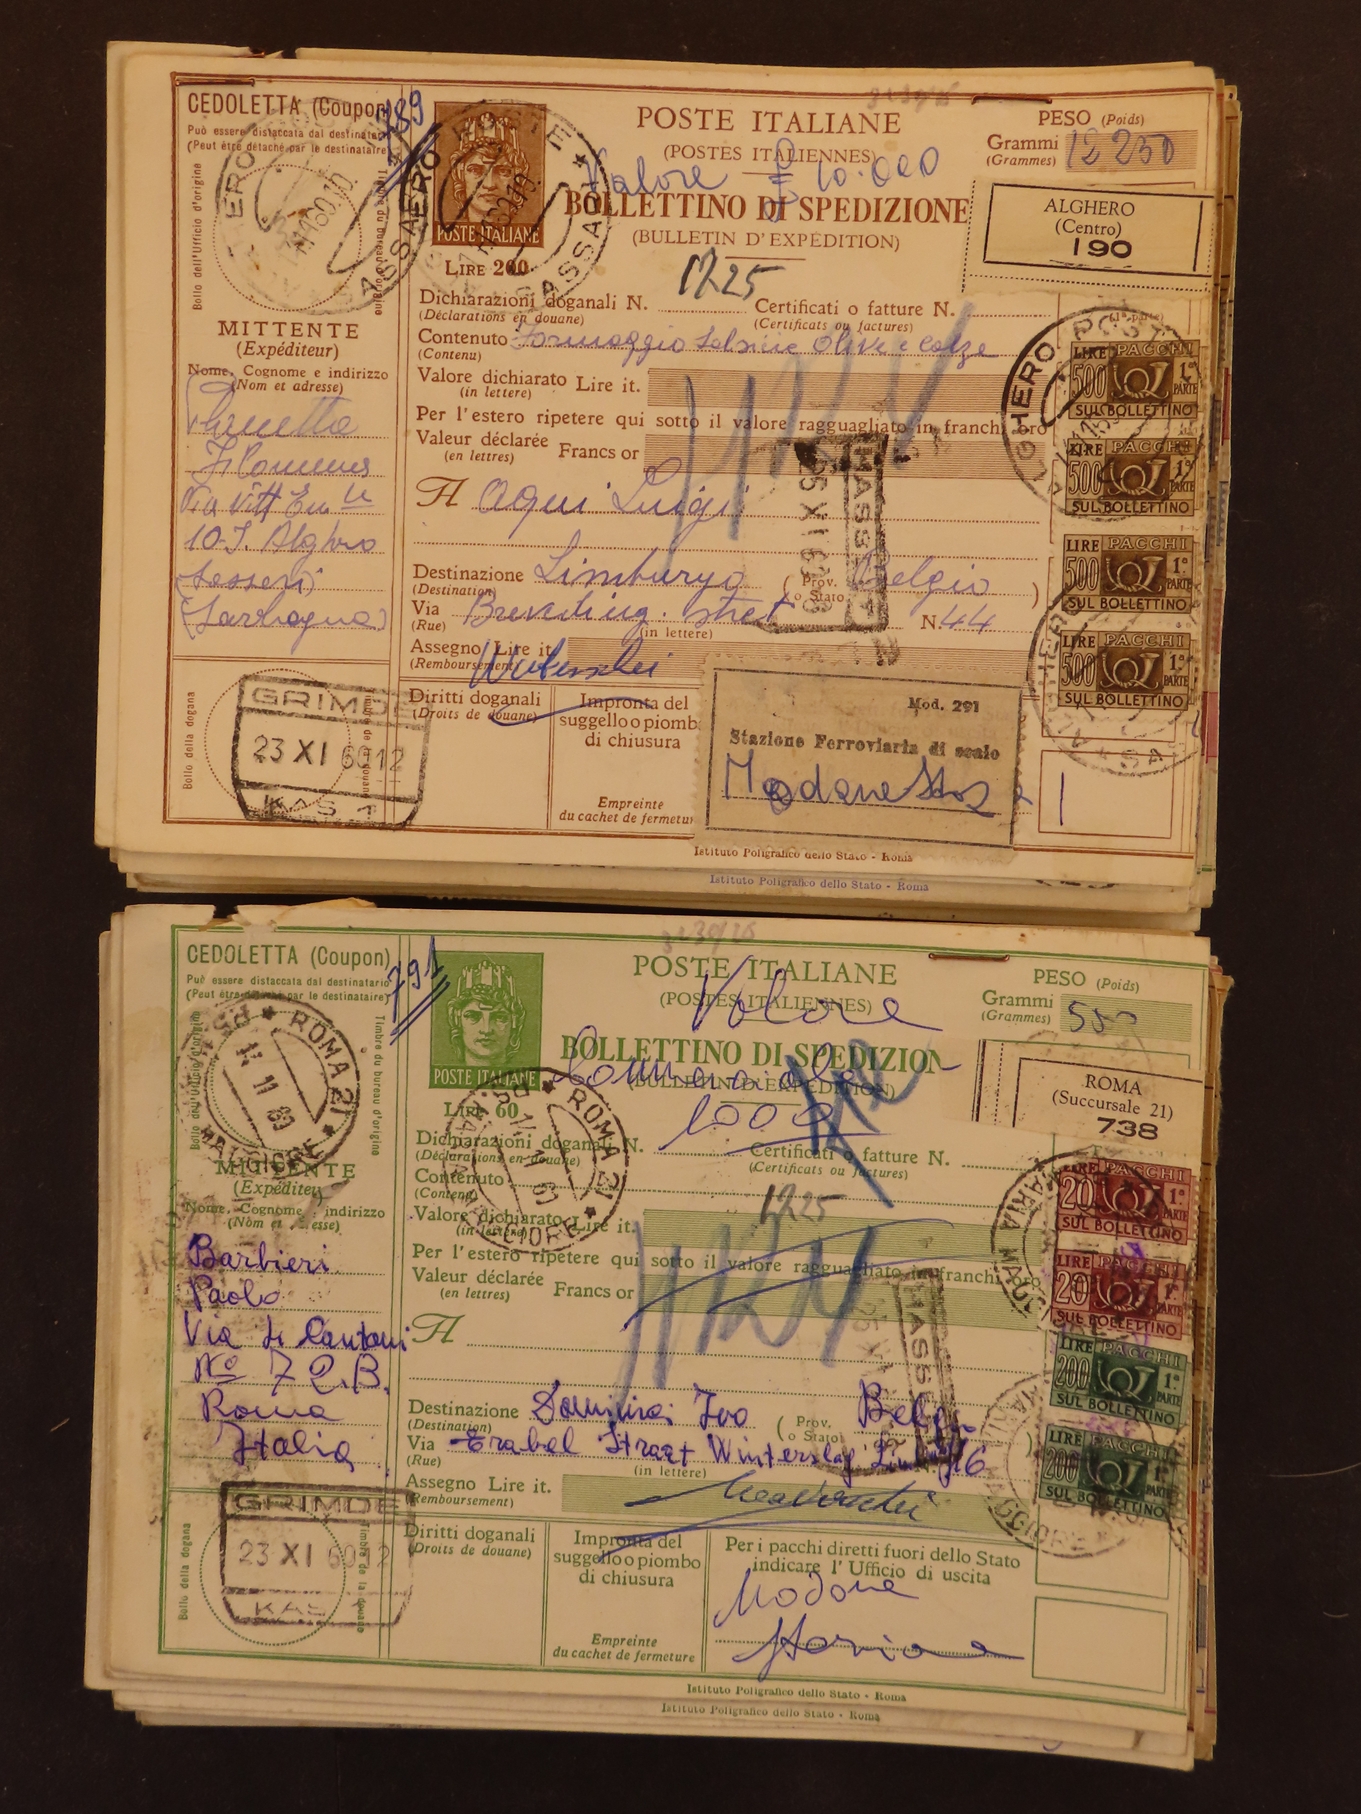 CEDOLETTA (Coupon)
Può essere distaccata dal destinatario
(Peut être détaché par le destinataire)
789
Bollo dell'Ufficio d'origine
Timbre du bureau d'origine
POSTE ITALIANE
LIRE 200
POSTE ITALIANE
(POSTES ITALIENNES)
Valore £ 10.000
BOLLETTINO DI SPEDIZIONE
(BULLETIN D'EXPÉDITION)
1225
PESO (Poids)
Grammi
(Grammes)
12 250
ALGHERO
(Centro)
190
MITTENTE
(Expéditeur)
Nome, Cognome e indirizzo
(Nom et adresse)
10 Alghero
Dichiarazioni doganali N.
(Déclarations en douane)
Certificati o fatture N.
(Certificats ou factures)
Contenuto Formaggio Salsicce Olive e calze
(Contenu)
Valore dichiarato Lire it.
(in lettere)
Per l'estero ripetere qui sotto il valore ragguagliato in franchi oro
Valeur déclarée Francs or
(en lettres)
A
Luigi
Destinazione Limburgo (Prov. o Stato) Belgio
(Destination)
Via
(Rue)
N. 44
(in lettere)
Assegno Lire it.
(Remboursement)
Diritti doganali
(Droits de douane)
Impronta del
suggello o piombo
di chiusura
Empreinte
du cachet de fermeture
Bollo della dogana
Timbre de la douane
GRIMDE
23 XI 60 12
KAS 1
HASSELT
Mod. 291
Stazione Ferroviaria di scalo
Modane
LIRE PACCHI
500 1ª PARTE
SUL BOLLETTINO
LIRE PACCHI
500 1ª PARTE
SUL BOLLETTINO
LIRE PACCHI
500 1ª PARTE
SUL BOLLETTINO
LIRE PACCHI
500 1ª PARTE
SUL BOLLETTINO
Istituto Poligrafico dello Stato - Roma
Istituto Poligrafico dello Stato - Roma
CEDOLETTA (Coupon)
Può essere distaccata dal destinatario
(Peut être détaché par le destinataire)
791
Bollo dell'Ufficio d'origine
Timbre du bureau d'origine
POSTE ITALIANE
LIRE 60
POSTE ITALIANE
(POSTES ITALIENNES)
Valore
BOLLETTINO DI SPEDIZION
(BULLETIN D'EXPÉDITION)
Commerciale
1000
PESO (Poids)
Grammi
(Grammes)
500
ROMA
(Succursale 21)
738
ROMA 21
MITTENTE
(Expéditeur)
Nome, Cognome e indirizzo
(Nom et adresse)
Barbieri
Paolo
Roma
Italia
Dichiarazioni doganali N.
(Déclarations en douane)
Certificati o fatture N.
(Certificats ou factures)
Contenuto
(Contenu)
1225
Valore dichiarato Lire it.
(in lettere)
Per l'estero ripetere qui sotto il valore ragguagliato in franchi oro
Valeur déclarée Francs or
(en lettres)
A
Destinazione Ivo (Prov. o Stato)
(Destination)
Via Winterslag
(Rue)
(in lettere)
Assegno Lire it.
(Remboursement)
Diritti doganali
(Droits de douane)
Impronta del
suggello o piombo
di chiusura
Empreinte
du cachet de fermeture
Per i pacchi diretti fuori dello Stato
indicare l'Ufficio di uscita
Modane
Bollo della dogana
Timbre de la douane
GRIMDE
23 XI 60 12
KAS 1
LIRE PACCHI
20 1ª PARTE
SUL BOLLETTINO
LIRE PACCHI
20 1ª PARTE
SUL BOLLETTINO
LIRE PACCHI
200 1ª PARTE
SUL BOLLETTINO
LIRE PACCHI
200 1ª PARTE
SUL BOLLETTINO
Istituto Poligrafico dello Stato - Roma
Istituto Poligrafico dello Stato - Roma